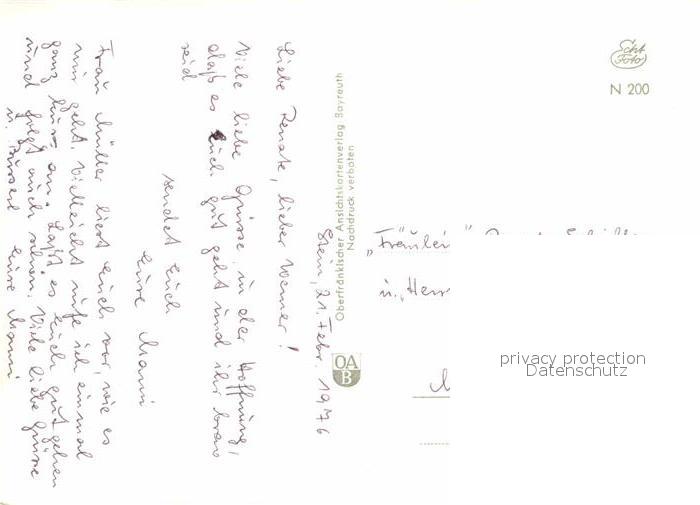 Stein, 21. Febr. 1976
Liebe Renate, lieber Werner!
Viele liebe Grüsse, in der Hoffnung,
daß es Euch gut geht und ihr brav
seid
sendet Euch
Eure Mami
Frau Müller liest Euch vor, wie es
mir geht. Vielleicht rufe ich einmal
ganz kurz an. Laßt es Euch gut gehen
und folgt auch schön. Viele liebe Grüsse
u. Busserl Eure Mami
Oberfränkischer Ansichtskartenverlag Bayreuth
Nachdruck verboten
OA
B
Echt
Foto
N 200
"Fräulein"
u. "Herr
privacy protection
Datenschutz